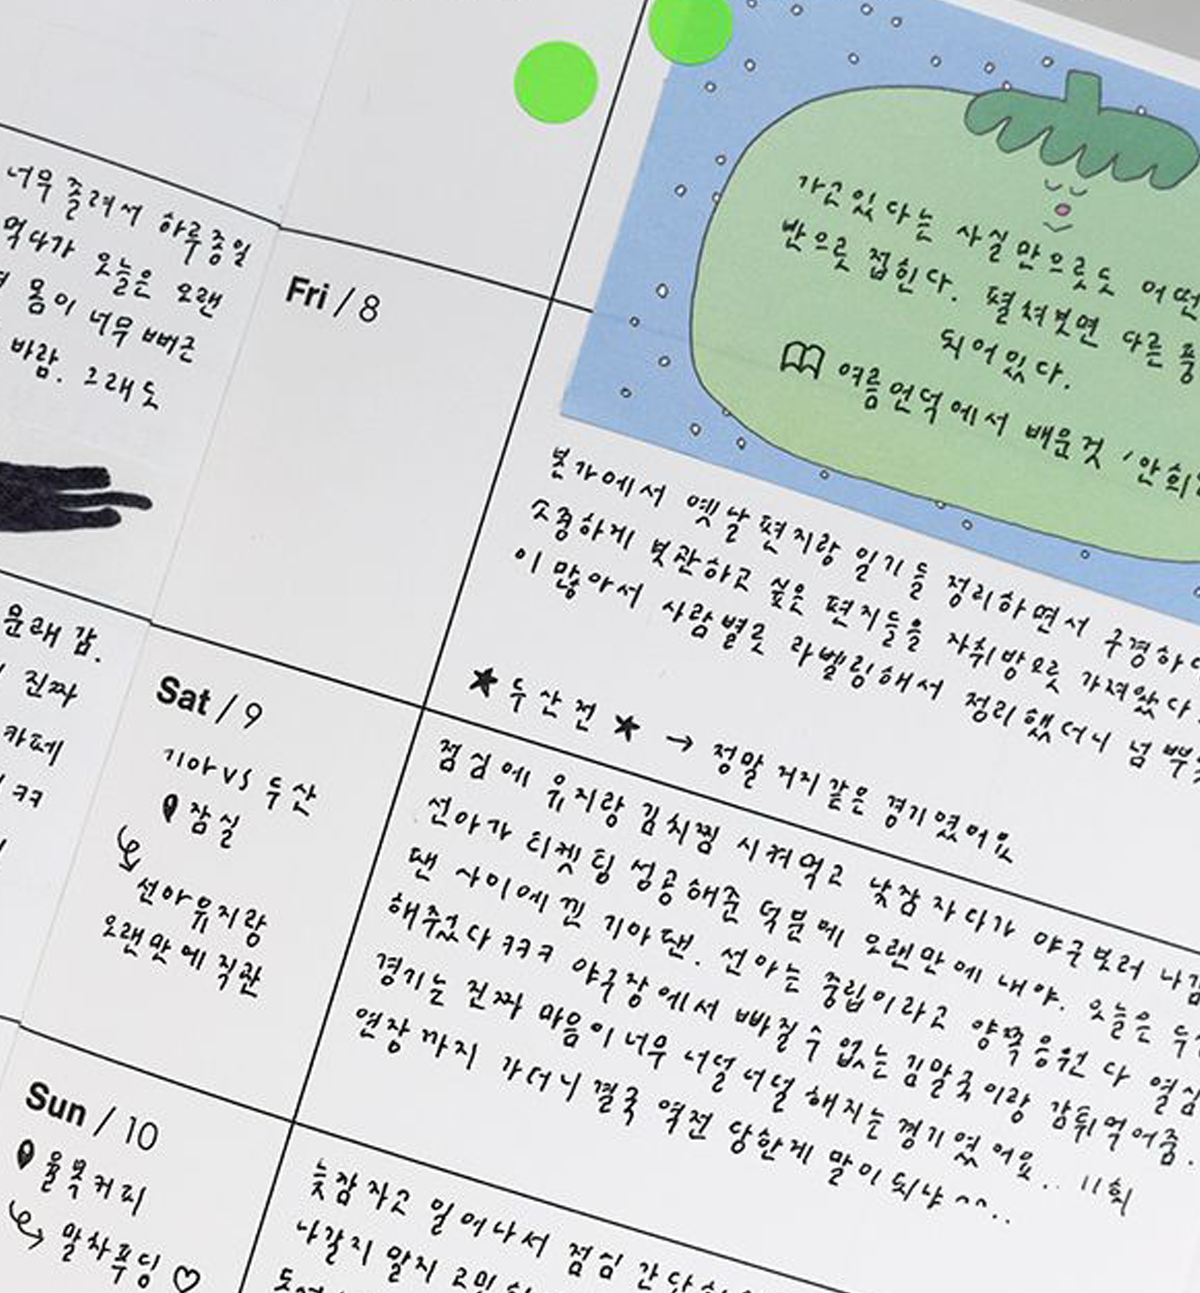 너무 졸려서 하루종일
먹다가 오늘은 오랜
몸이 너무 뻐근
바람. 그래도
문래 감.
진짜
카페
ㅋㅋ
Fri / 8
가고 있다는 사실만으로도 어떤
반으로 접힌다. 펼쳐보면 다른 풍
되어있다.
여름언덕에서 배운것 '안희
본가에서 옛날 편지랑 일기들 정리하면서 구경하다
소중하게 보관하고 싶은 편지들을 자취방으로 가져왔다.
이 많아서 사람별로 라벨링해서 정리했더니 넘 뿌듯
Sat / 9
기아 vs 두산
잠실
선아유지랑
오랜만에 직관
★ 두산전 ★ → 정말 거지같은 경기였어요
점심에 유지랑 김치찜 시켜먹고 낮잠자다가 야구보러 나감
선아가 티켓팅 성공해준 덕분에 오랜만에 내야. 오늘은 두산
팬 사이에 낀 기아팬. 선아는 중립이라고 양쪽응원 다 열심
해주었다 ㅋㅋㅋ 야구장에서 빠질수 없는 김말국이랑 감튀먹어줌.
경기는 진짜 마음이 너무 너덜너덜 해지는 경기였어요.. 11회
연장까지 가더니 결국 역전 당한게 말이되냐^^..
Sun / 10
율북커피
말차푸딩 ♡
늦잠자고 일어나서 점심 간단
나갈지 말지 고민